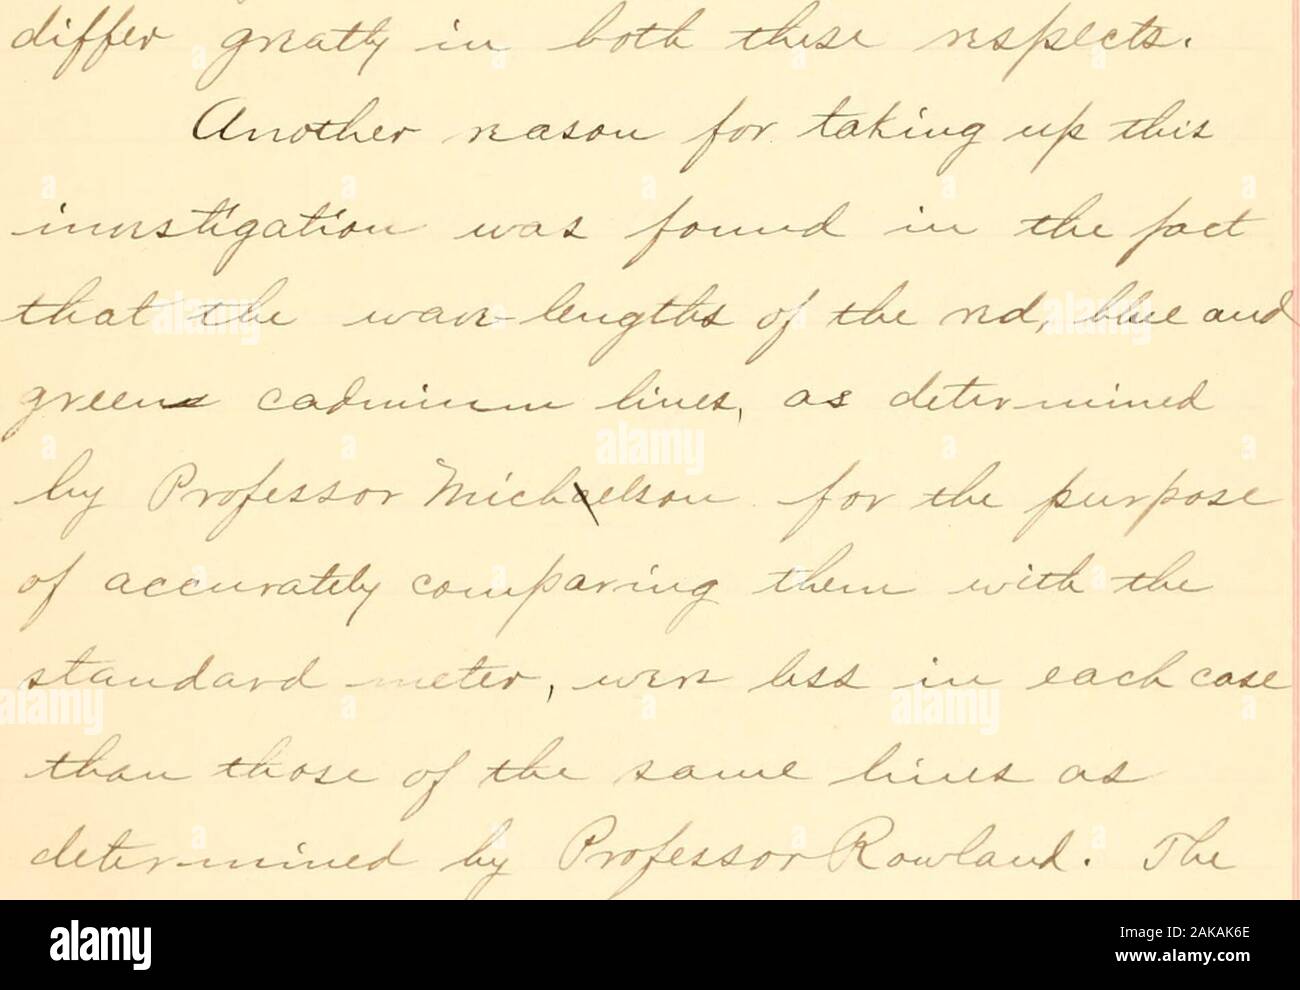 differ greatly in both these respects.
Another reason for taking up this
investigation was found in the fact
that the wave-lengths of the red, blue and
green cadmium lines, as determined
by Professor Michaelson for the purpose
of accurately comparing them with the
standard meter, were less in each case
than those of the same lines as
determined by Professor Rowland. The
alamy
Image ID: 2AKAK6E
www.alamy.com